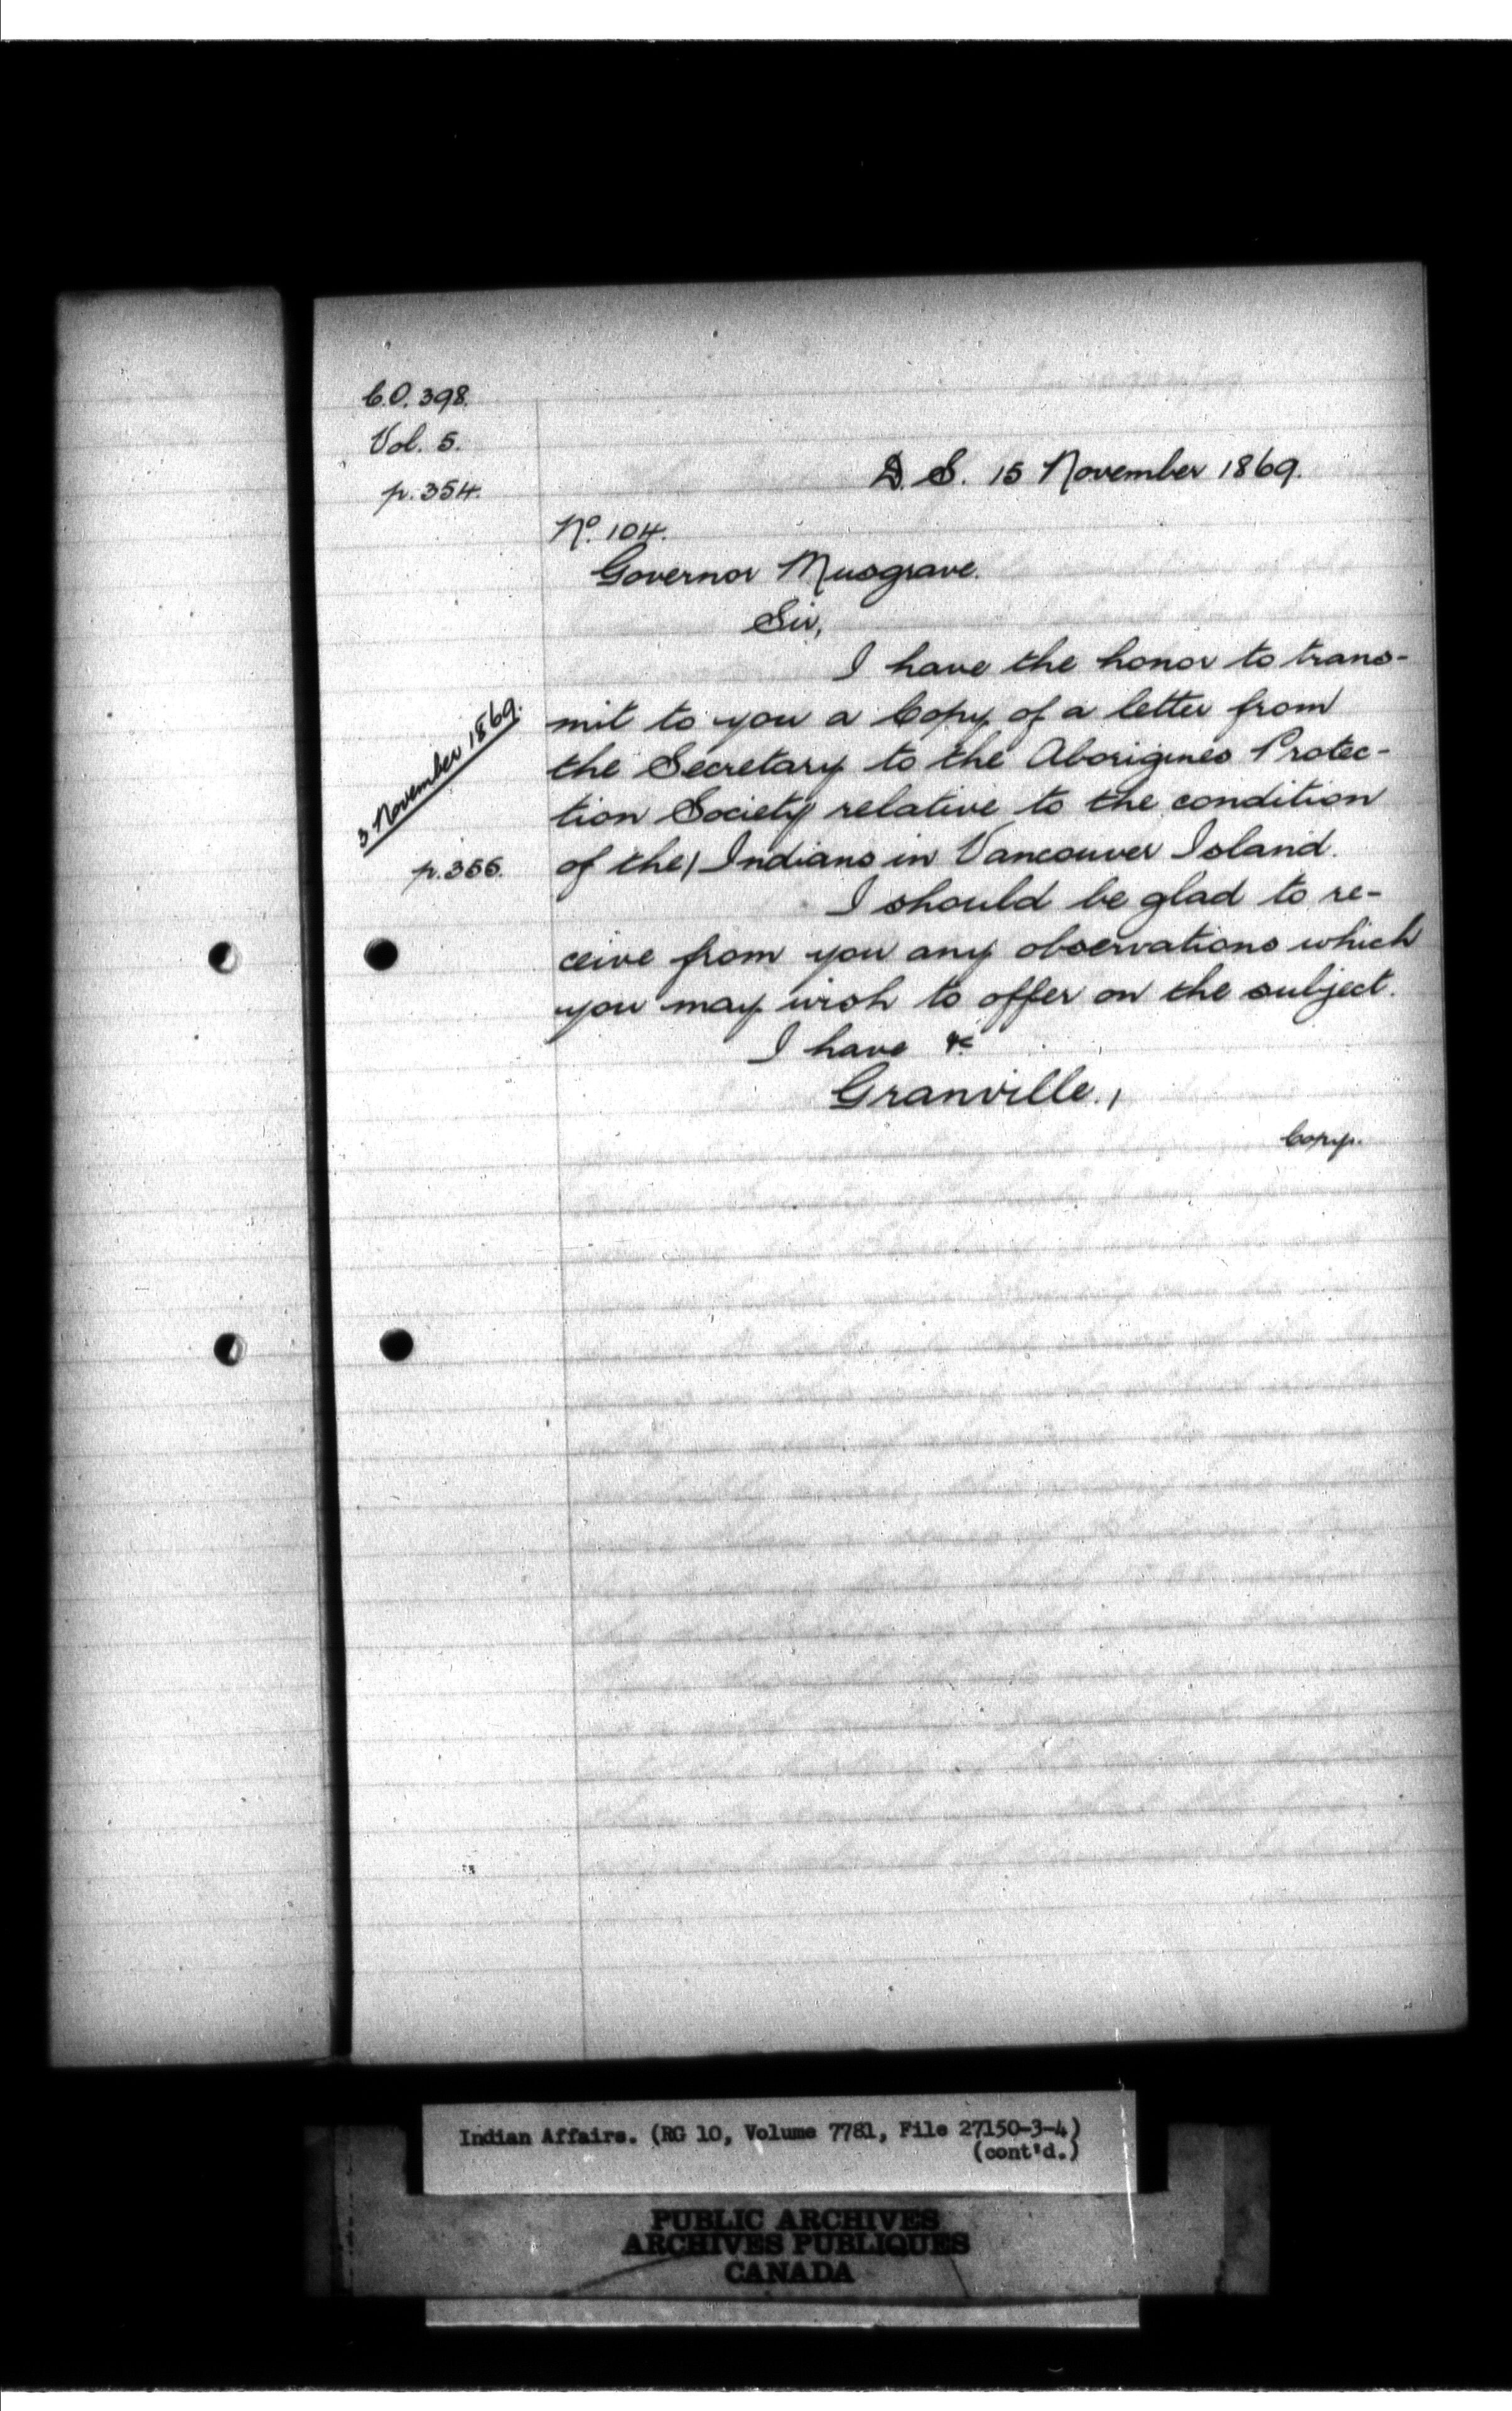 C.O. 398.
Vol. 5.
p. 354.
D. S. 15 November 1869.
No. 104.
Governor Musgrave.
Sir,
I have the honor to trans-
mit to you a Copy of a letter from
the Secretary to the Aborigines Protec-
tion Society relative to the condition
of the Indians in Vancouver Island.
3 November 1869.
p.355.
I should be glad to re-
ceive from you any observations which
you may wish to offer on the subject.
I have &c
Granville.
Copy.
Indian Affairs. (RG 10, Volume 7781, File 27150-3-4)
(cont'd.)
PUBLIC ARCHIVES
ARCHIVES PUBLIQUES
CANADA